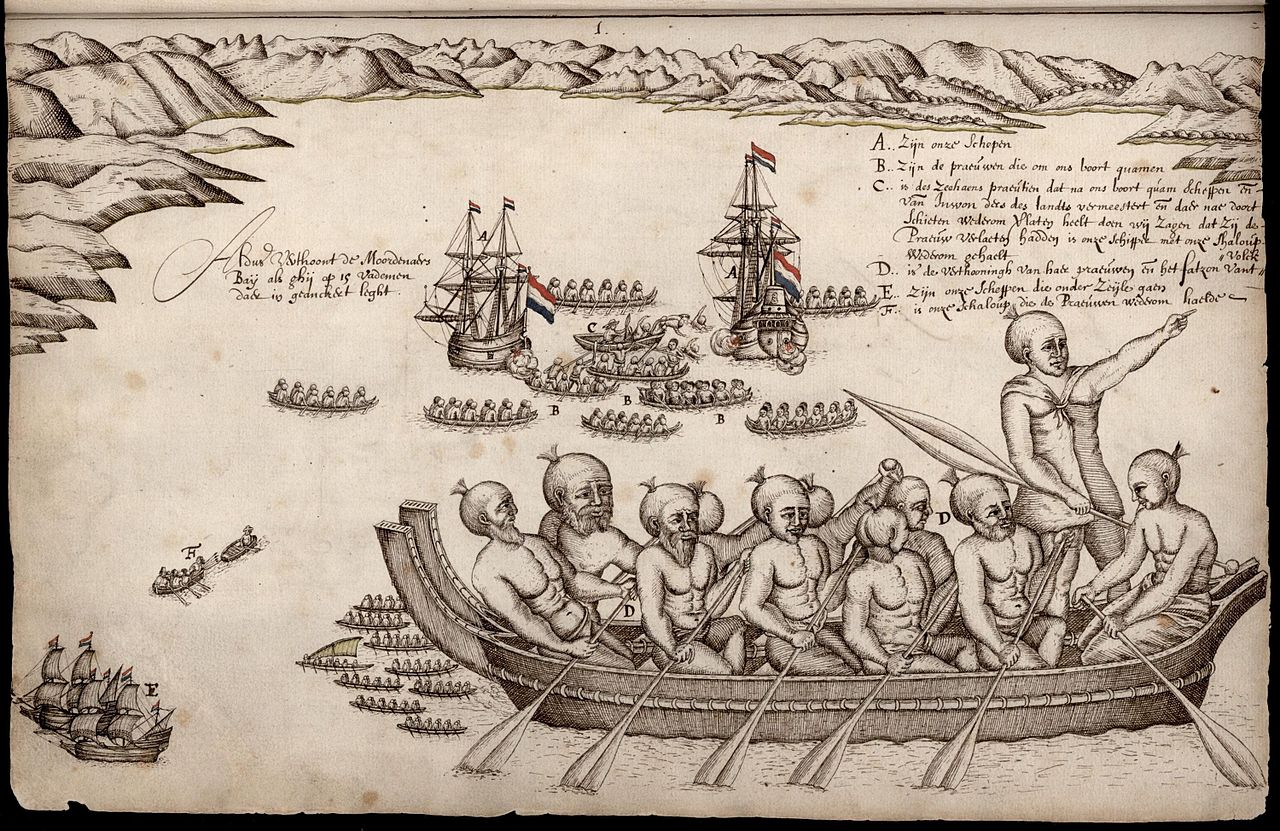 1.
A.. Zijn onze Schepen
B.. Zijn de praeuwen die om ons boort quamen
C.. is des Zeehaens praeutien dat na ons boort quam Scheppen en
van Inwon ders des landts vermeestert en daer nae door't
Schieten Wederom Verlaten heeft doen wij Zagen dat Zij de
Praeuw Verlaeten hadden is onze Schipper met onze Shaloup
Wederom gehaelt
D.. is de Verthooningh van haer praeuwen en het fatzon Vant Volck
E.. Zijn onze Scheppen die onder Zeijle gaen
F.. is onze Schaloup die de Praeuwen wederom haelde
Aldus Verthoont de Moordenaers
Bay als ghij op 15 Vademen
daer in geanckert leght.
A
A
C
B
B
B
D
D
F
E